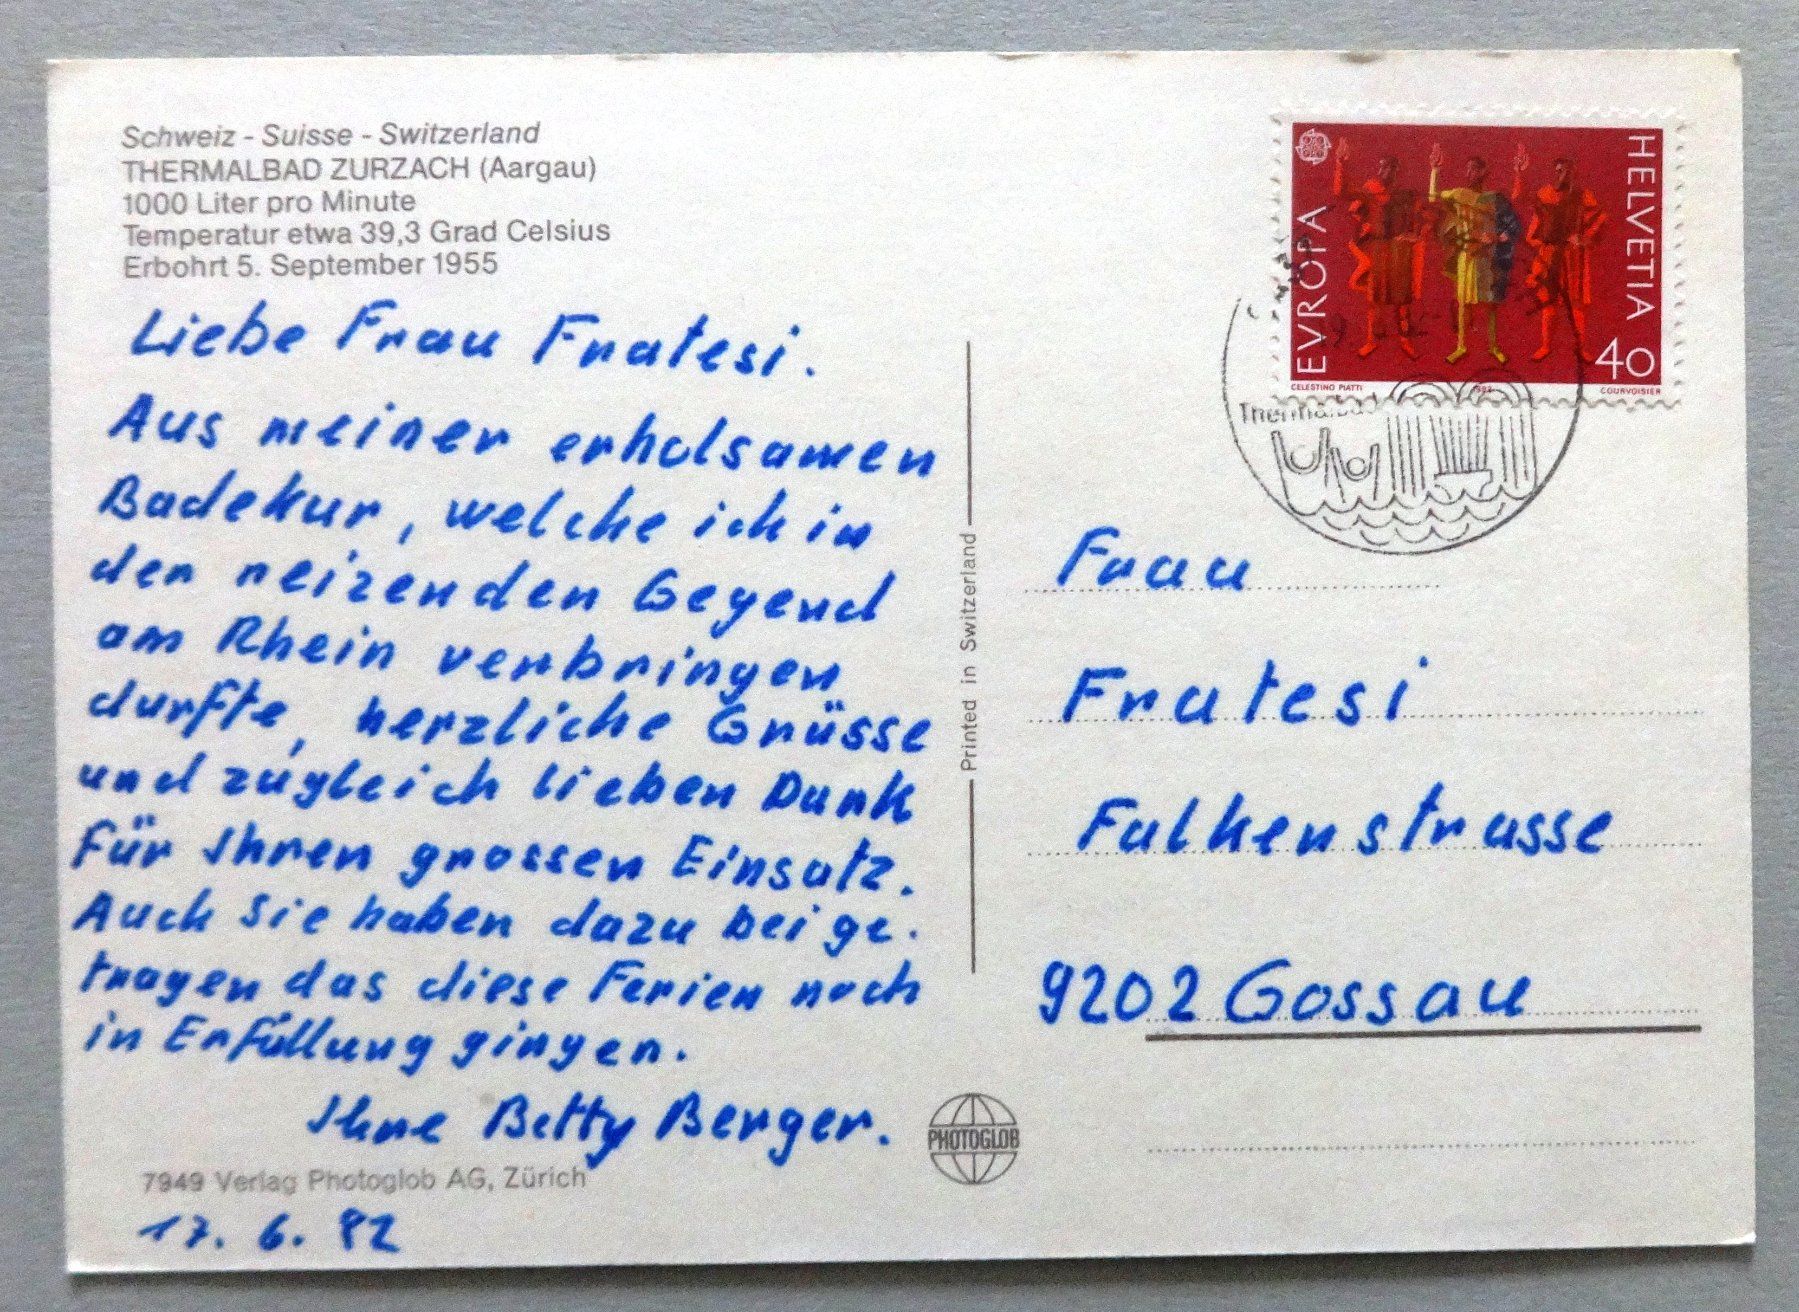 Schweiz - Suisse - Switzerland
THERMALBAD ZURZACH (Aargau)
1000 Liter pro Minute
Temperatur etwa 39,3 Grad Celsius
Erbohrt 5. September 1955
Liebe Frau Fratesi.
Aus meiner erholsamen
Badekur, welche ich in
den reizenden Gegend
am Rhein verbringen
durfte, herzliche Grüsse
und zugleich lieben Dank
für Ihren grossen Einsatz.
Auch Sie haben dazu beige-
tragen das diese Ferien noch
in Erfüllung gingen.
Ihre Betty Berger.
7949 Verlag Photoglob AG, Zürich
17. 6. 82
Printed in Switzerland
PHOTOGLOB
EVROPA
HELVETIA
40
CELESTINO PIATTI
1982
COURVOISIER
Thermalbad
Frau
Fratesi
Falkenstrasse
9202 Gossau